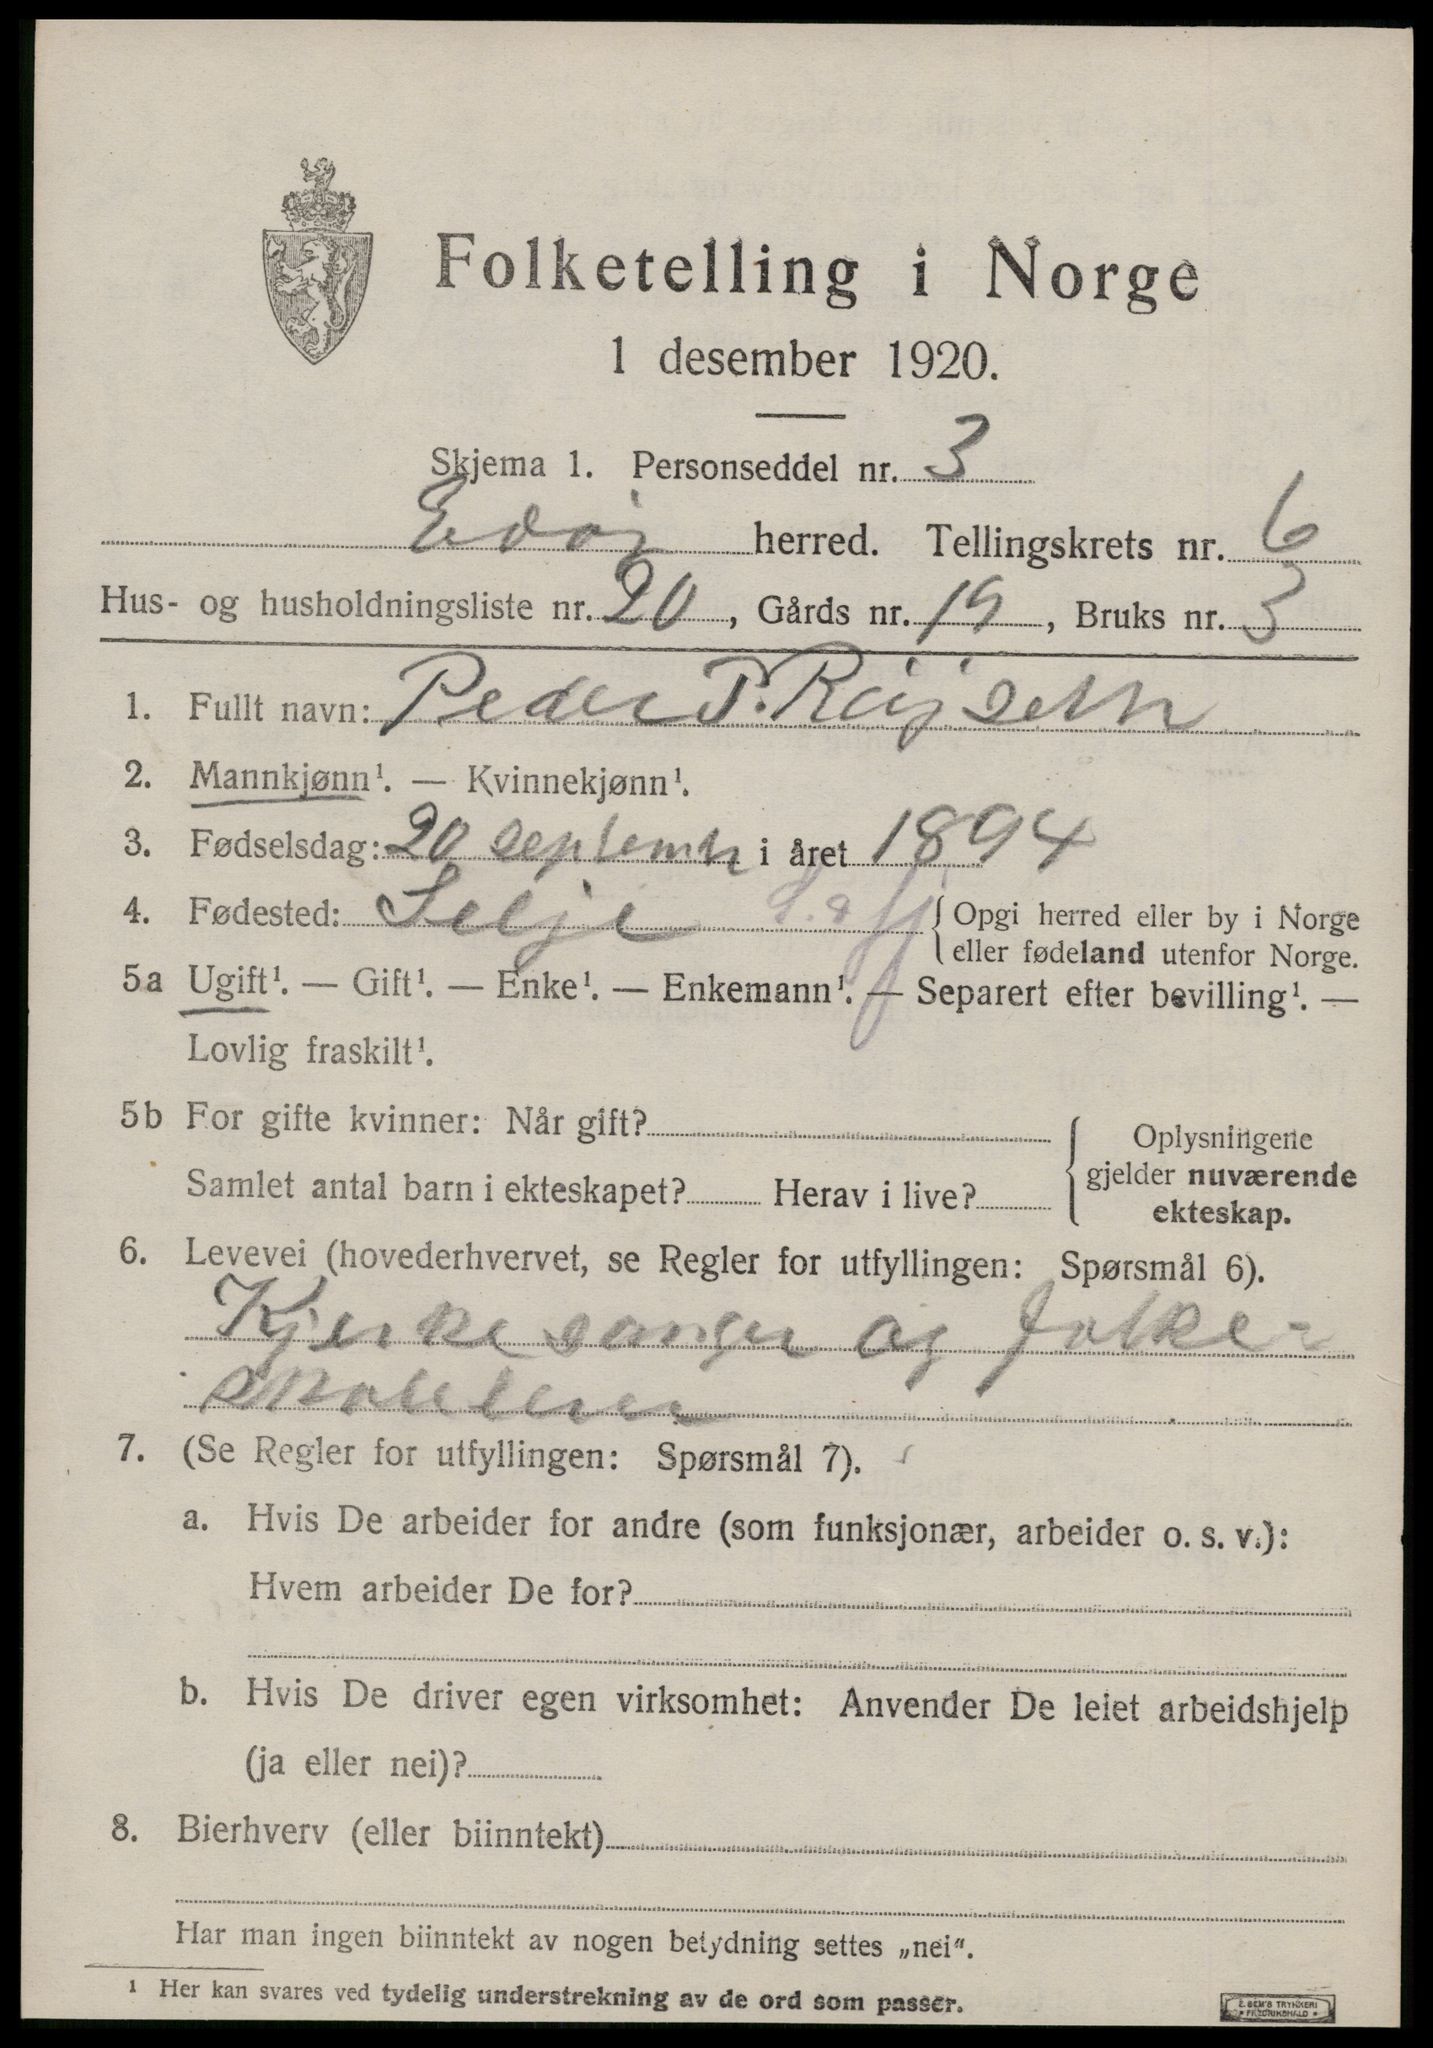 Folketelling i Norge
1 desember 1920.
Skjema 1. Personseddel nr. 3
Edøy herred. Tellingskrets nr. 6
Hus- og husholdningsliste nr. 20, Gårds nr. 19, Bruks nr. 3
1. Fullt navn: Peder P. Røyseth
2. Mannkjønn¹. — Kvinnekjønn¹.
3. Fødselsdag: 20 septembr i året 1894
4. Fødested: Selje S. & Fj { Opgi herred eller by i Norge
eller fødeland utenfor Norge.
5a Ugift¹. — Gift¹. — Enke¹. — Enkemann¹. — Separert efter bevilling¹. —
Lovlig fraskilt¹.
5b For gifte kvinner: Når gift?
Samlet antal barn i ekteskapet? Herav i live?
{ Oplysningene
gjelder nuværende
ekteskap.
6. Levevei (hovederhvervet, se Regler for utfyllingen: Spørsmål 6).
Kjerkesanger og folke-
skolelærer
7. (Se Regler for utfyllingen: Spørsmål 7).
a. Hvis De arbeider for andre (som funksjonær, arbeider o. s. v.):
Hvem arbeider De for?
b. Hvis De driver egen virksomhet: Anvender De leiet arbeidshjelp
(ja eller nei)?
8. Bierhverv (eller biinntekt)
Har man ingen biinntekt av nogen betydning settes „nei".
¹ Her kan svares ved tydelig understrekning av de ord som passer.
E. SEM'S TRYKKERI
FREDRIKSHALD